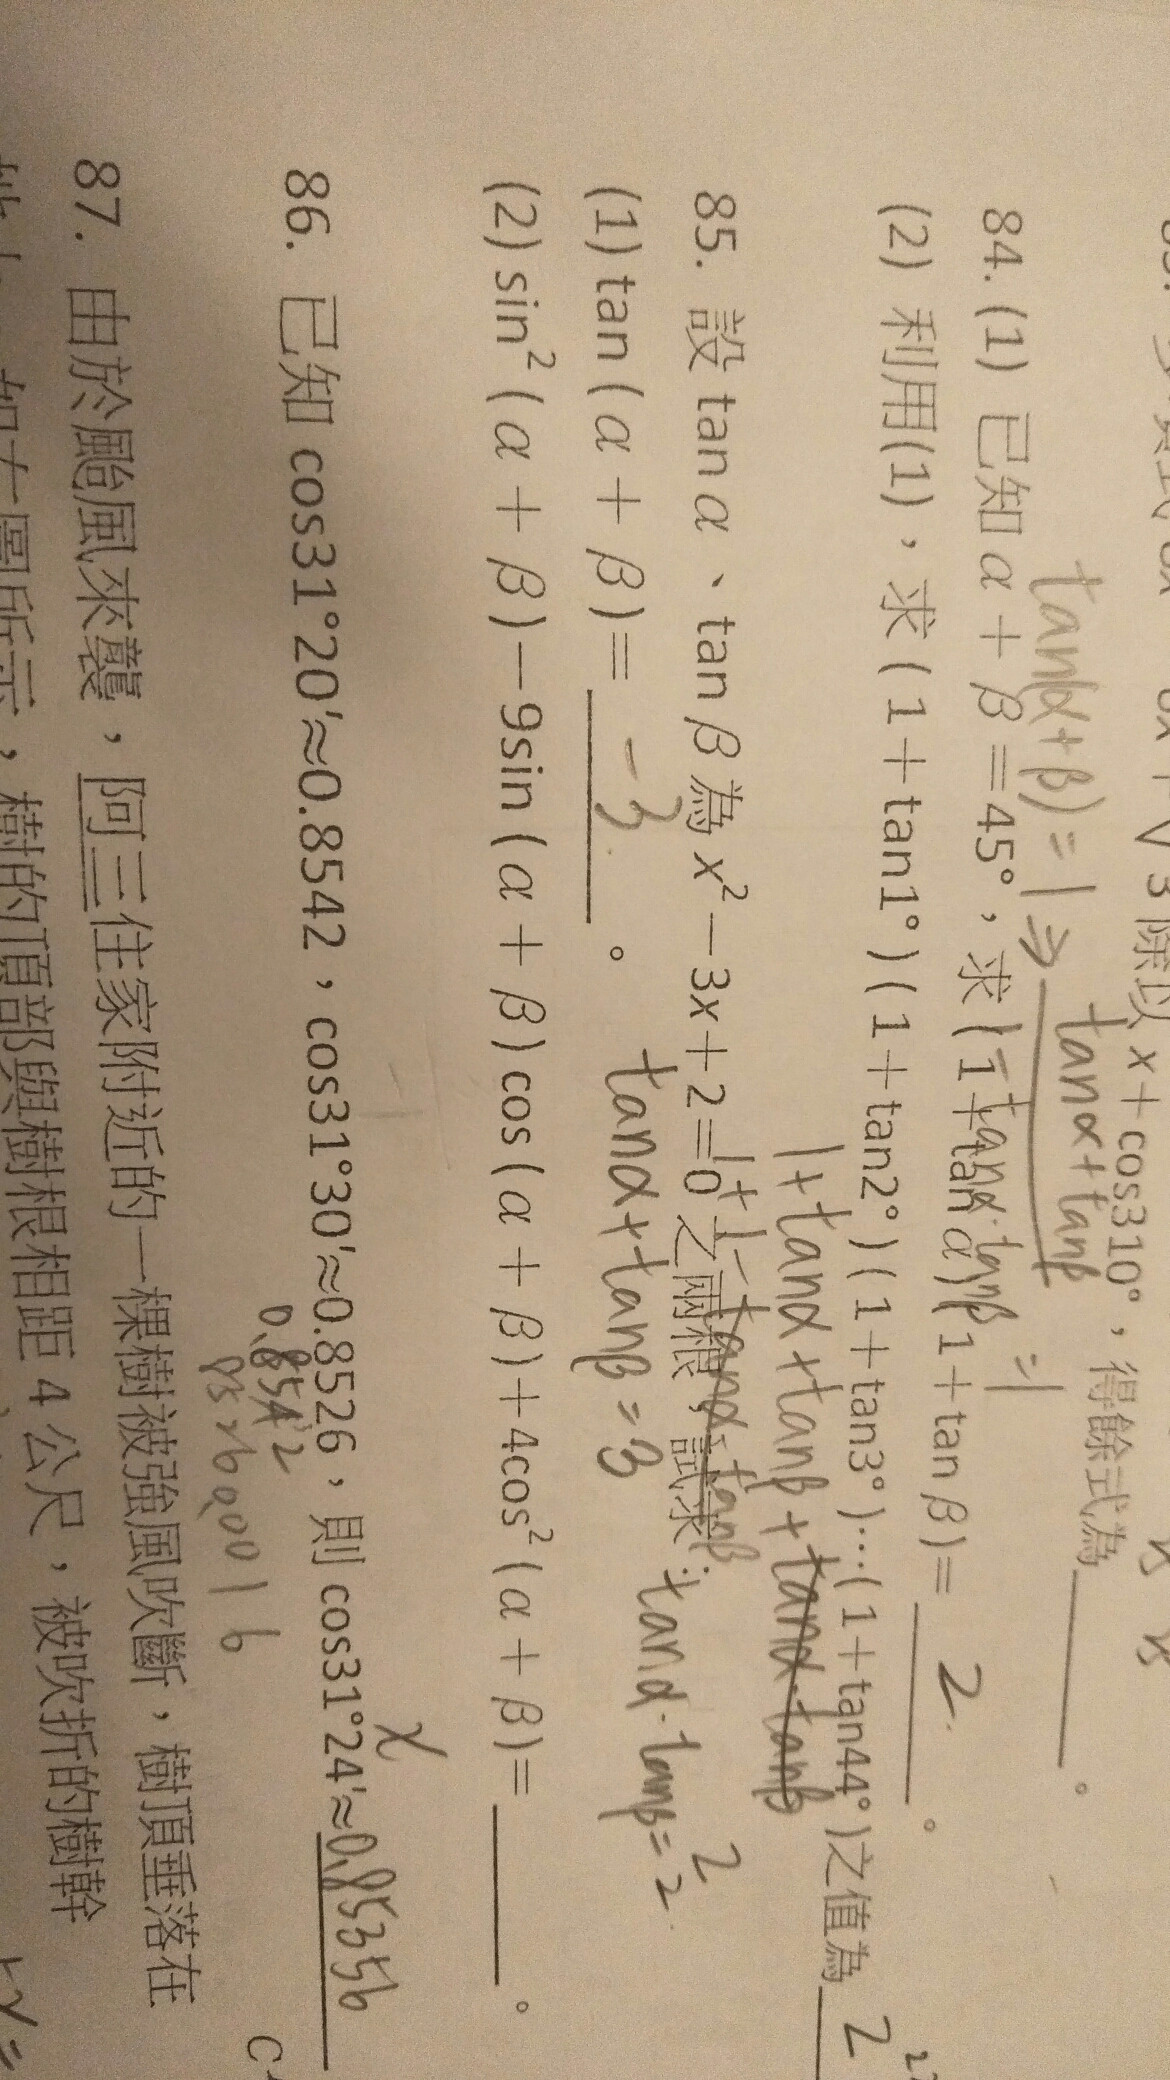 √3 除以 x+cos310°，得餘式為＿＿＿。
tan(α+β)=1 ⇒ tanα+tanβ
1-tanα·tanβ =1
84. (1) 已知 α+β=45°，求(1+tan α)(1+tan β)= 2 。
(2) 利用(1)，求(1+tan1°)(1+tan2°)(1+tan3°)⋯(1+tan44°)之值為 2²²
1+tanα+tanβ+tanα·tanβ
1+1-tanα·tanβ
2
85. 設 tan α、tan β 為 x²－3x+2=0 之兩根，試求：
tanα+tanβ=3 tanα·tanβ=2
(1) tan(α+β)= -3 。
(2) sin²(α+β)－9sin(α+β)cos(α+β)+4cos²(α+β)=＿＿＿。
x
86. 已知 cos31°20′≈0.8542，cos31°30′≈0.8526，則 cos31°24′≈0.85356
0.8542
8526 0.0016
87. 由於颱風來襲，阿三住家附近的一棵樹被強風吹斷，樹頂垂落在
如右圖所示，樹的頂部與樹根相距 4 公尺，被吹折的樹幹